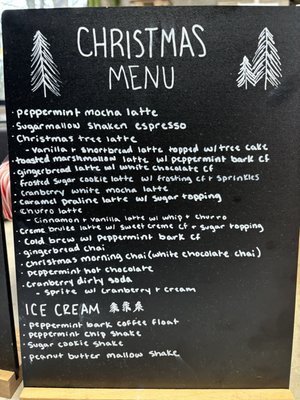 CHRISTMAS
MENU
· peppermint mocha latte
· Sugarmallow shaken espresso
· Christmas tree latte
- Vanilla + shortbread latte topped w/ tree cake
· toasted marshmallow latte w/ peppermint bark cf
· gingerbread latte w/ white chocolate cf
· frosted sugar cookie latte w/ frosting cf + sprinkles
· cranberry white mocha latte
· caramel praline latte w/ sugar topping
· churro latte
- cinnamon + vanilla latte w/ whip + churro
· creme brulee latte w/ sweet creme cf + sugar topping
· cold brew w/ peppermint bark cf
· gingerbread chai
· christmas morning chai (white chocolate chai)
· peppermint hot chocolate
· cranberry dirty soda
- sprite w/ cranberry + cream
ICE CREAM
· peppermint bark coffee float
· peppermint chip shake
· sugar cookie shake
· peanut butter mallow shake